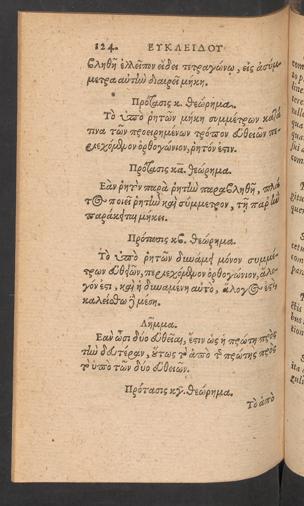 124. ΕΥΚΛΕΙΔΟΥ
βληθῇ ἐλλεῖπον εἴδει τετραγώνῳ, εἰς ἀσύμ-
μετρα αὐτὴν διαιρεῖ μήκει.
Πρότασις κ. θεώρημα.
Τὸ ὑπὸ ῥητῶν μήκει συμμέτρων κατά
τινα τῶν προειρημένων τρόπον εὐθειῶν πε-
ριεχόμενον ὀρθογώνιον, ῥητόν ἐστιν.
Πρότασις κα. θεώρημα.
Ἐὰν ῥητὸν παρὰ ῥητὴν παραβληθῇ, πλά-
τος ποιεῖ ῥητὴν καὶ σύμμετρον, τῇ παρ' ἣν
παράκειται μήκει.
Πρότασις κβ. θεώρημα.
Τὸ ὑπὸ ῥητῶν δυνάμει μόνον συμμέ-
τρων εὐθειῶν, περιεχόμενον ὀρθογώνιον, ἄλο-
γόν ἐστι, καὶ ἡ δυναμένη αὐτὸ, ἄλογός ἐστι,
καλείσθω ἢ μέση.
Λῆμμα.
Ἐὰν ὦσι δύο εὐθεῖαι, ἔστιν ὡς ἡ πρώτη πρὸς
τὴν δευτέραν, οὕτως τὸ ἀπὸ τῆς πρώτης πρὸς
τὸ ὑπὸ τῶν δύο εὐθειῶν.
Πρότασις κγ. θεώρημα.
Τὸ ἀπὸ